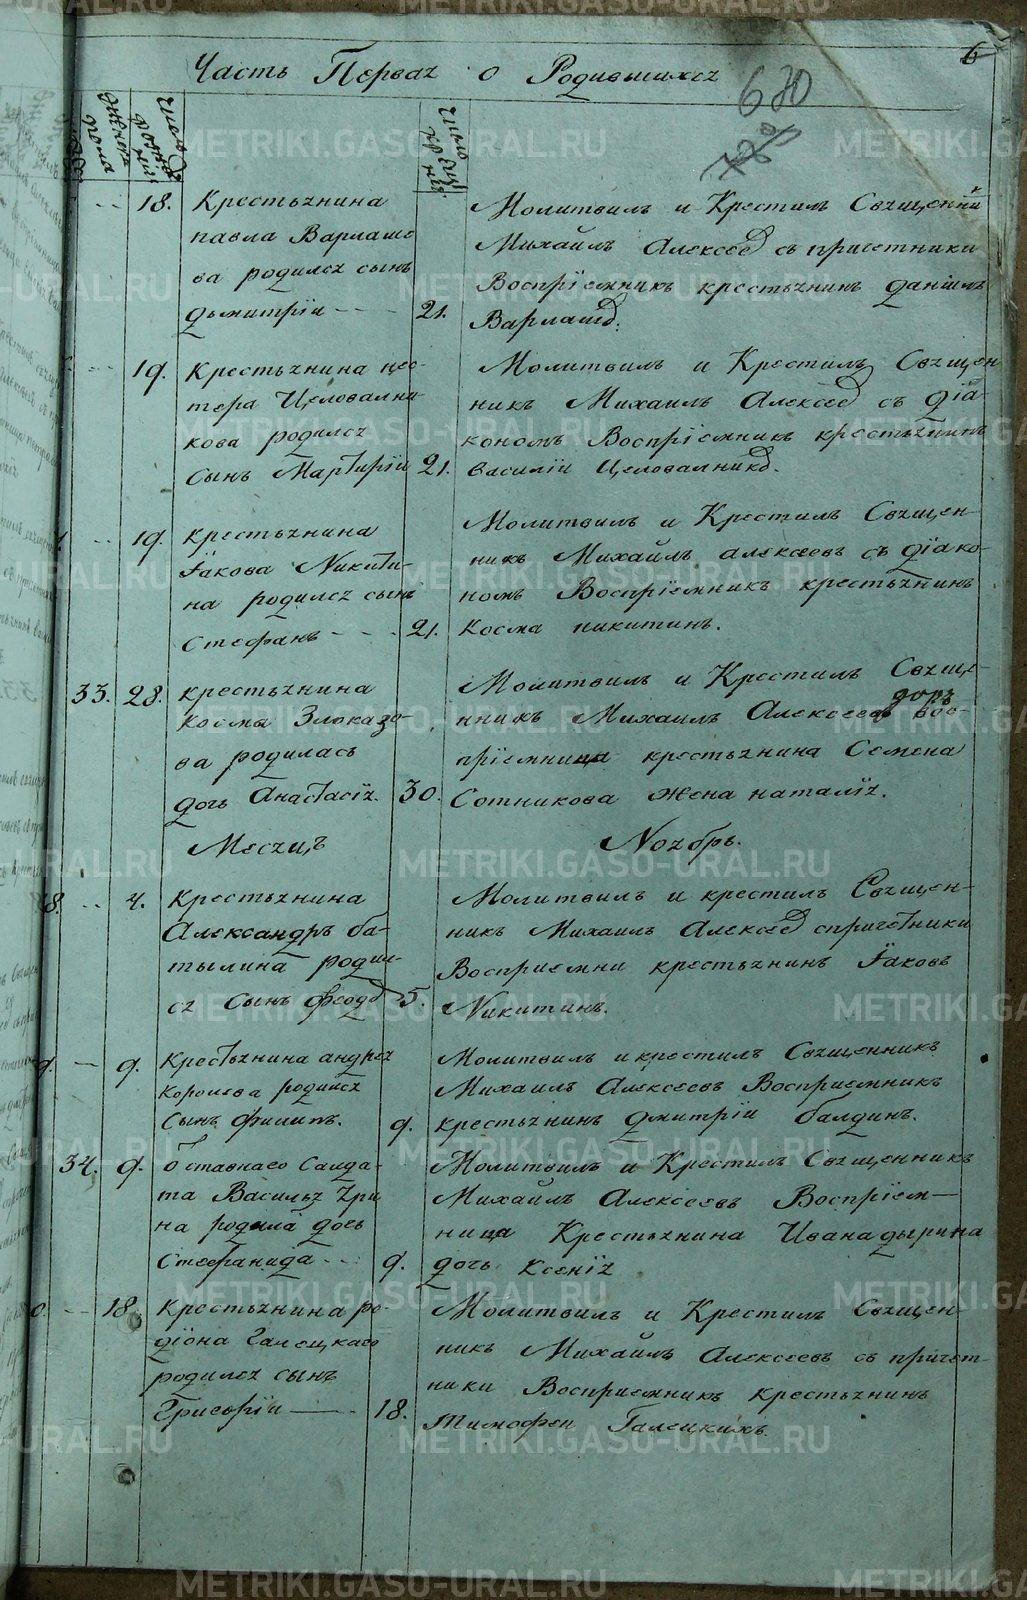 6
Часть Первая о Родившихся
630
780
женска пола
число рождений
число крещения
18. Крестьянина
павла Варлаше
ва родился сынъ
дьмитрiи
21.
Молитвилъ и Крестилъ Священни
Михайлъ Алексеев съ причетники
Воспрiемникъ крестьянинъ данiилъ
Варлашев.
19. Крестьянина нес-
тера Целовални
кова родился
Сынъ Мартирiи
21.
Молитвилъ и Крестилъ Священ
никъ Михаилъ Алексеев съ дiа-
кономъ Воспрiемникъ крестьянинъ
василiи Целовалников.
19. крестьянина
Iакова Никити-
на родился сынъ
Стефанъ
21.
Молитвилъ и Крестилъ Священ-
никъ Михайлъ алексеевъ съ дiако-
номъ Воспрiемникъ крестьянинъ
Косма никитинъ.
33. 28. крестьянина
космы Злоказо-
ва родилась
дочь Анастасiя.
30.
Молитвилъ и Крестилъ Свяще-
нникъ Михаилъ Алексеевъ вос-
прiемница крестьянина Семена
Сотникова жена наталiя.
Месяцъ Ноябрь.
8. 4. Крестьянина
Александръ ба-
тылина родил-
ся Сынъ феодор
5.
Молитвилъ и крестилъ Священ-
никъ Михаилъ Алексеев спричетники
Восприемни крестьянинъ Iаковъ
Никитинъ.
9. 9. Крестьянина андрея
Королева родился
Сынъ филипъ.
9.
Молитвилъ и крестилъ Священникъ
Михаилъ Алексеевъ Восприемникъ
крестьянинъ дмитрiи балдинъ.
34. 9. Отставнаго Салда-
та Василья Iри
на родила дочь
Стефанида
9.
Молитвилъ и Крестилъ Священникъ
Михайлъ Алексеевъ Воспрiем-
ница Крестьянина Ивана дырина
дочь Ксенiя
0. 18. Крестьянина ро-
дiона Галецкаго
родился сынъ
Григорiи
18.
Молитвилъ и Крестилъ Священ-
никъ Михайлъ Алексеевъ съ причет-
ники Восприемникъ Крестьянинъ
Тимофеи Галецкихъ.
METRIKI.GASO-URAL.RU